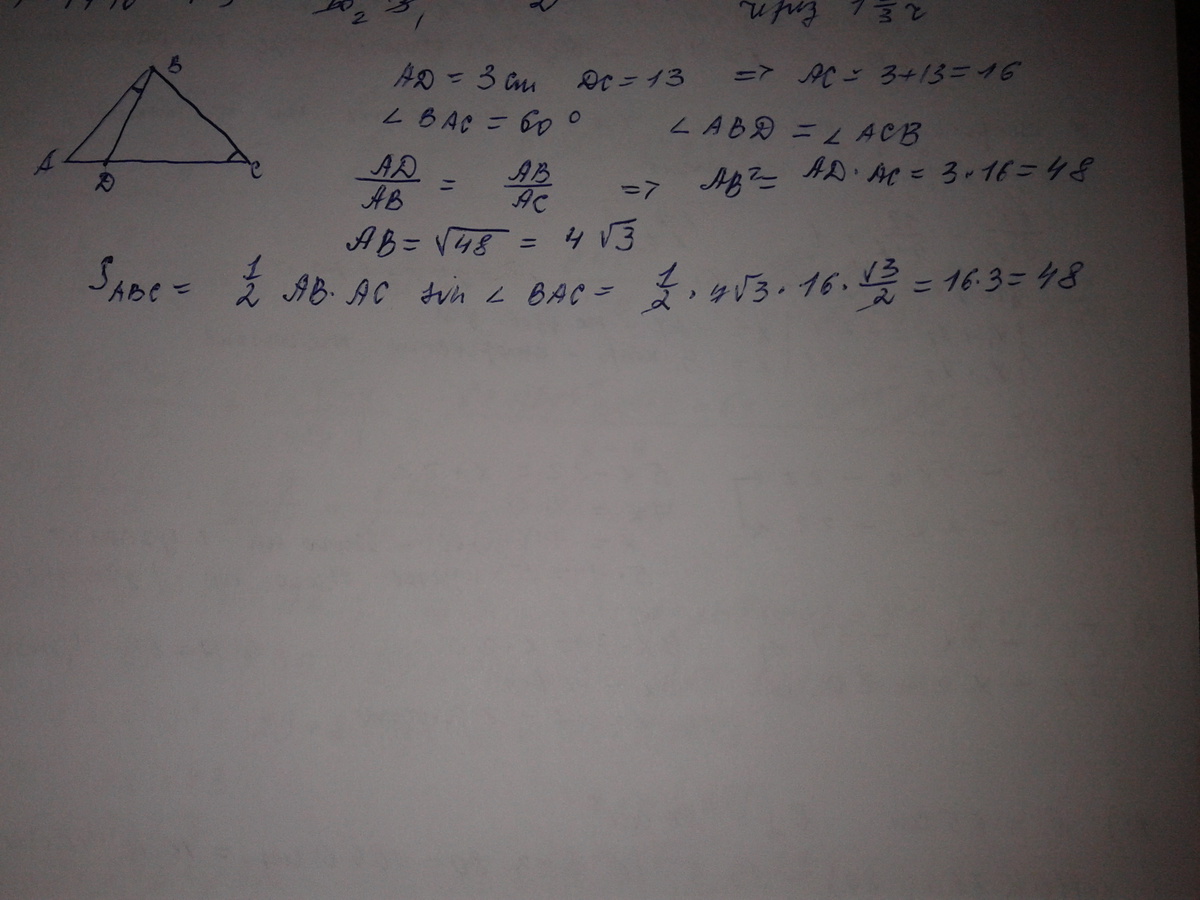 через 1 2/3 ч
B
AD = 3 см DC = 13 => AC = 3+13 = 16
∠ BAC = 60° ∠ ABD = ∠ ACB
A D C
AD/AB = AB/AC => AB² = AD · AC = 3 · 16 = 48
AB = √48 = 4 √3
S ABC = 1/2 AB · AC sin ∠ BAC = 1/2 · 4√3 · 16 · √3/2 = 16 · 3 = 48